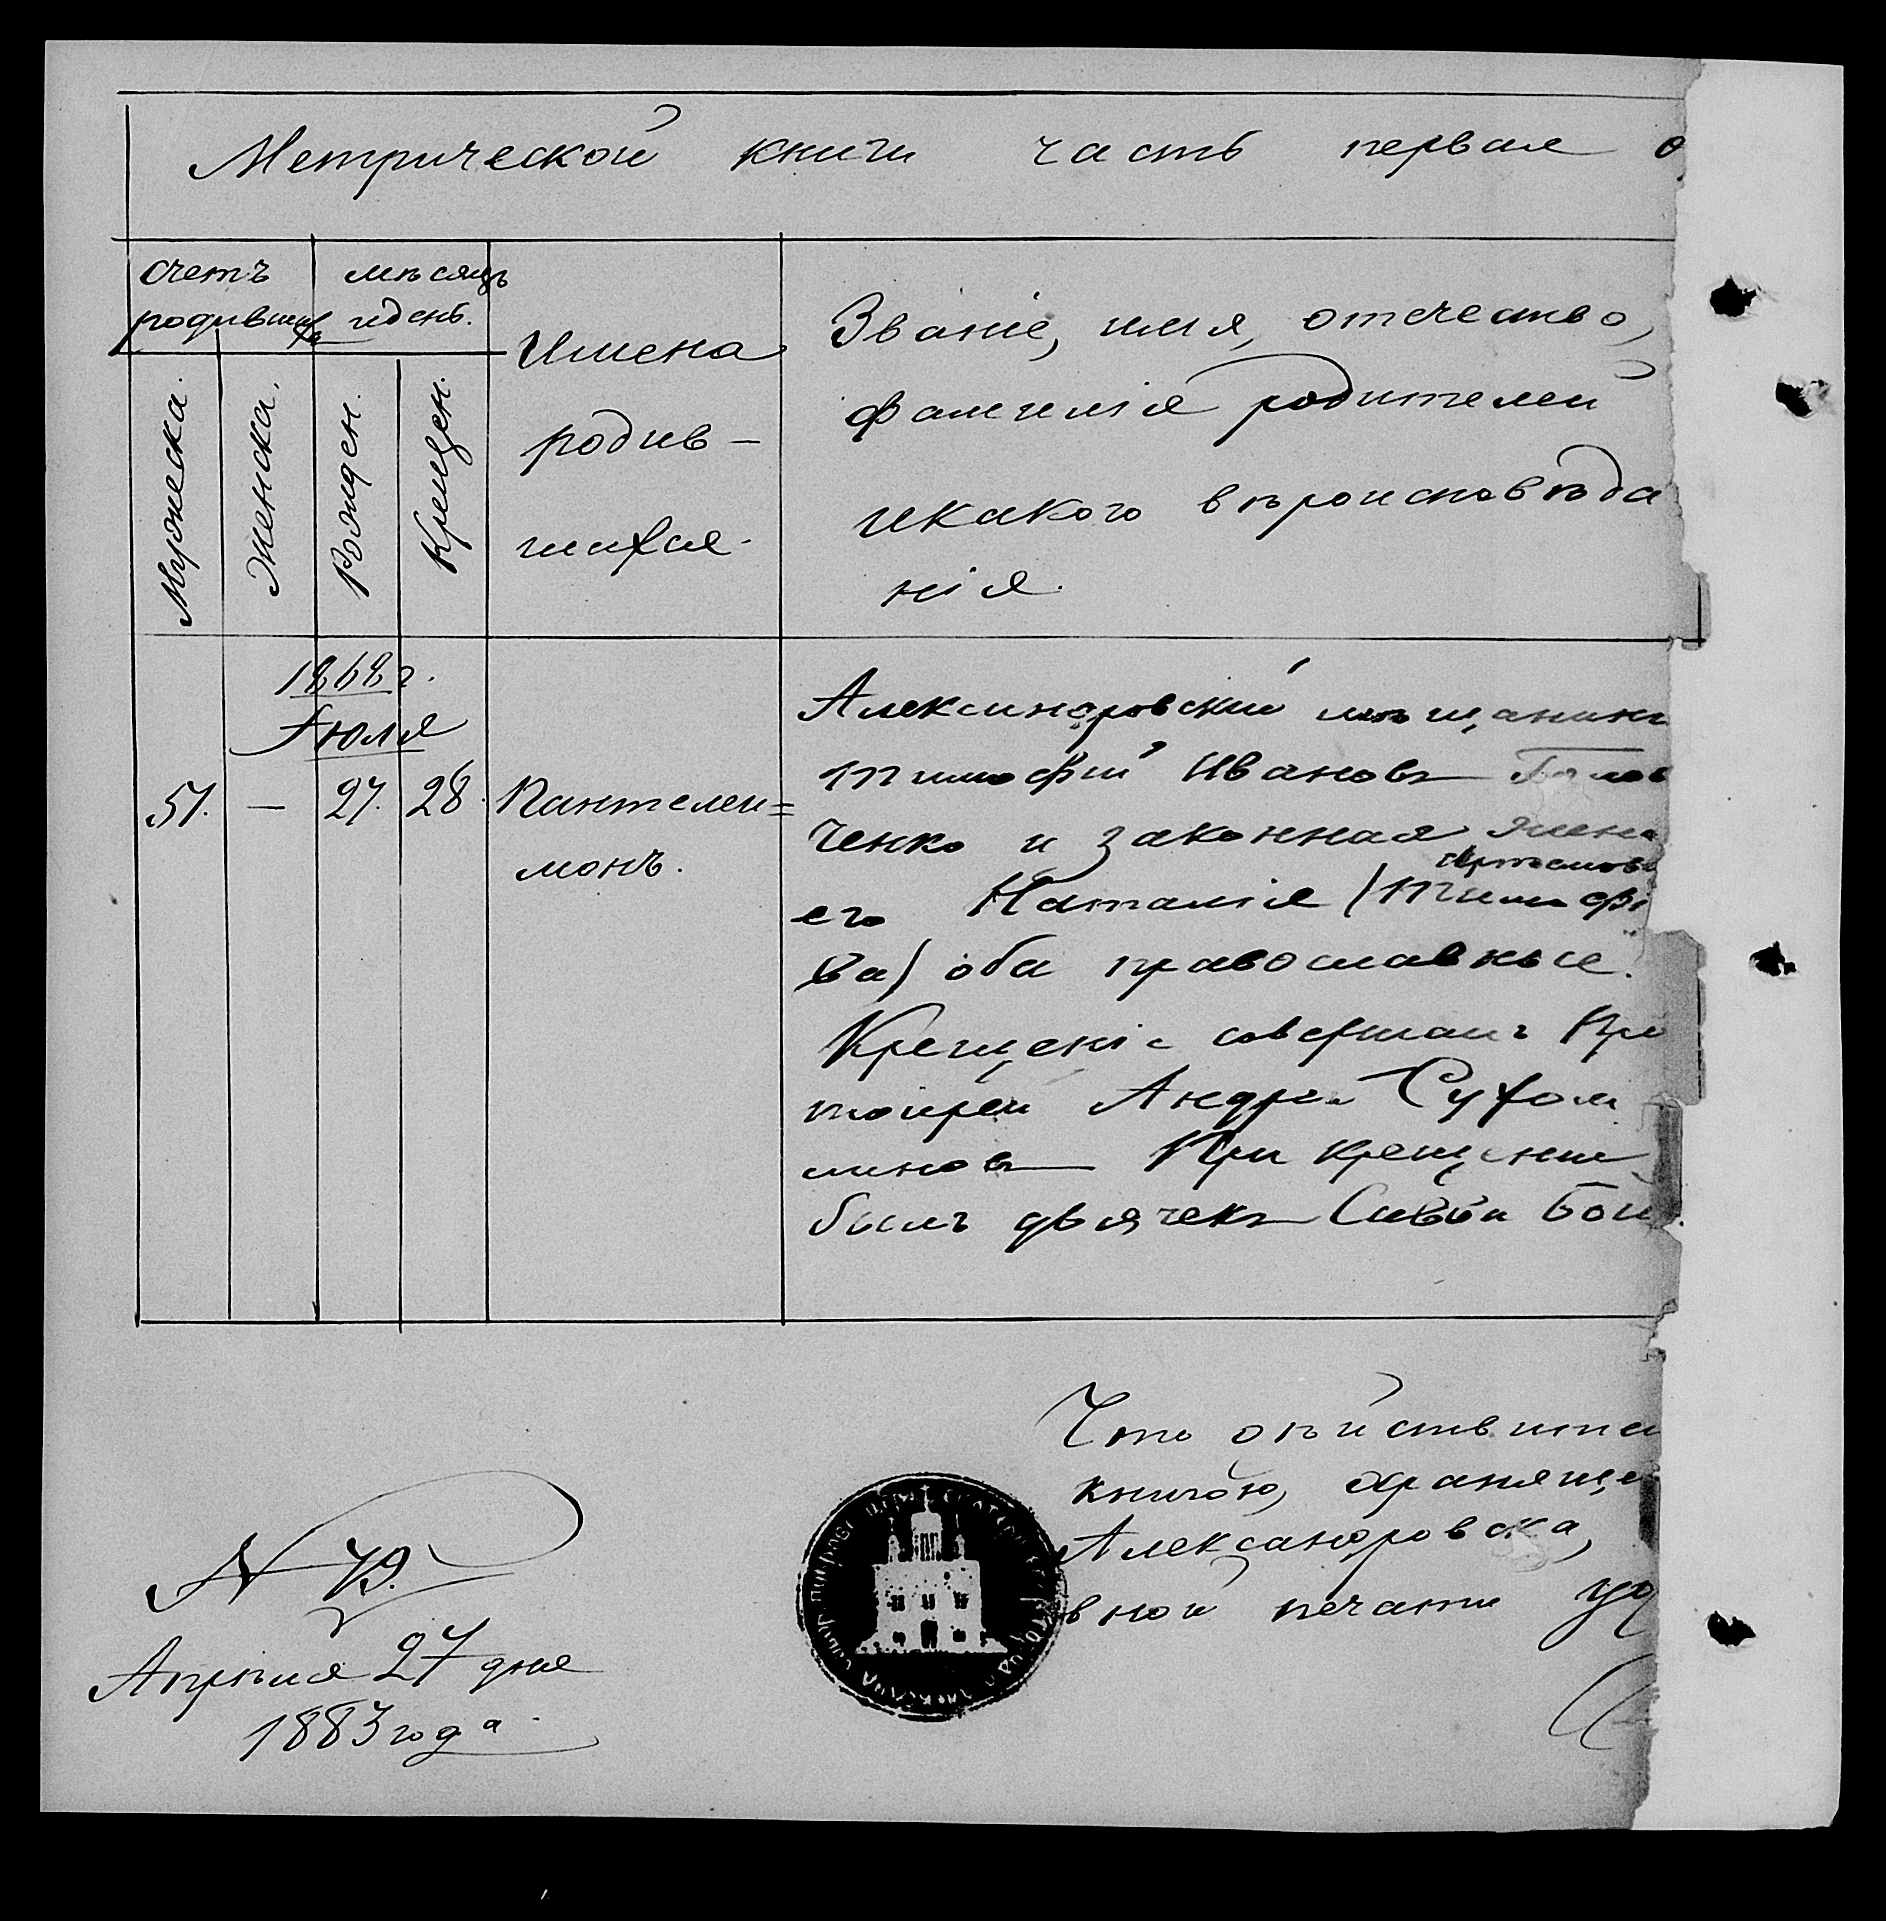 Метрической книги часть первая о
Счетъ
родившихся
мѣсяцъ
и день.
Мужеска.
Женска.
Рожден.
Крещен.
Имена
родив-
шихся.
Званіе, имя, отечество,
фамилія родителей
и какого вѣроисповѣда
нія.
1868 г.
Іюля
51. — 27. 28. Пантелеи=
монъ.
Александровскій мѣщанинъ
Тимофій Ивановъ Голов
ченко и законная жена
Артемова
его Наталія (Тимофі
ва) оба православные.
Крещеніе совершалъ Про
тоіерей Андрей Сухом
линовъ При крещеніи
былъ дьячекъ Бой
Что дѣйствител
книгою, хранящ
Александровска,
вной печати уд
N 79.
Апрѣля 27 дня
1883 года.